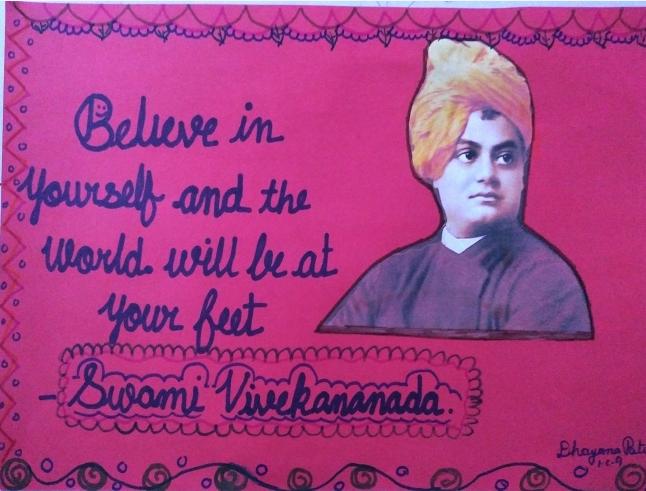 Believe in
yourself and the
world. will be at
your feet
- Swami Vivekananada.